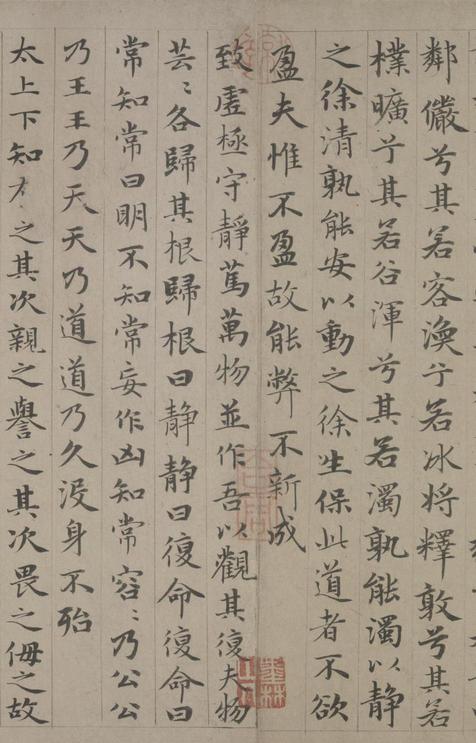 鄰儼兮其若客渙兮若冰將釋敦兮其若
樸曠兮其若谷渾兮其若濁孰能濁以靜
之徐清孰能安以動之徐生保此道者不欲
盈夫惟不盈故能弊不新成
致虛極守靜篤萬物並作吾以觀其復夫物
芸〻各歸其根歸根曰靜靜曰復命復命曰
常知常曰明不知常妄作凶知常容〻乃公公
乃王王乃天天乃道道乃久沒身不殆
太上下知有之其次親之譽之其次畏之侮之故